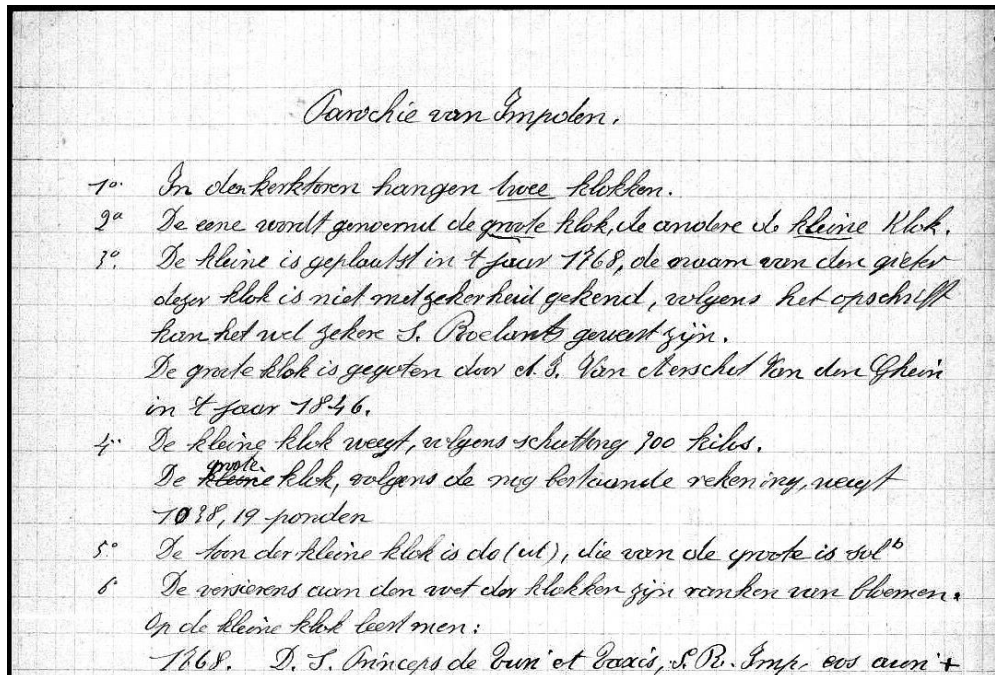 Parochie van Impden.
1o. In den kerktoren hangen twee klokken.
2o De eene wordt genoemd de groote klok, de andere de kleine Klok.
3o. De kleine is geplaatst in 't jaar 1768, de naam van den gieter
dezer klok is niet met zekerheid gekend, volgens het opschrift
kan het wel zekere S. Roelants geweest zijn.
De groote klok is gegoten door A. L. Van Aerschot Van den Ghein
in 't jaar 1846.
4o De kleine klok weegt, volgens schatting 300 kilos.
De groote klok, volgens de nog bestaande rekening, weegt
1038,19 ponden
5o De toon der kleine klok is do (ut), die van de groote is sol b
6o De versierens aan den voet der klokken zijn ranken van bloemen.
Op de kleine klok leest men:
1768. D. S. Princeps de Turri et Taxis, S. R. Imp. eos +